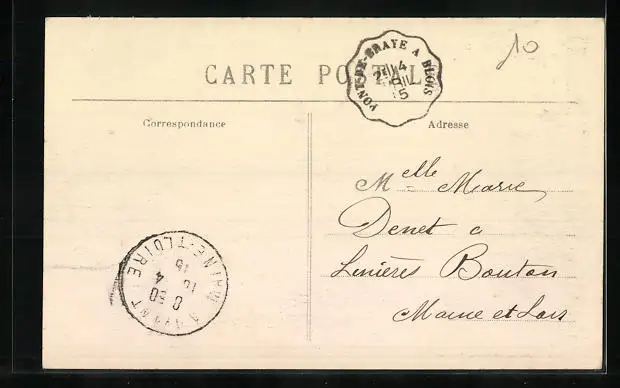 10
CARTE POSTALE
PONT-DE-BRAYE A BLOIS
Correspondance
Adresse
Melle Marie
Denet a
Linières Bouton
Maine et Loir
MAINE-ET-LOIRE
15
4
8 30